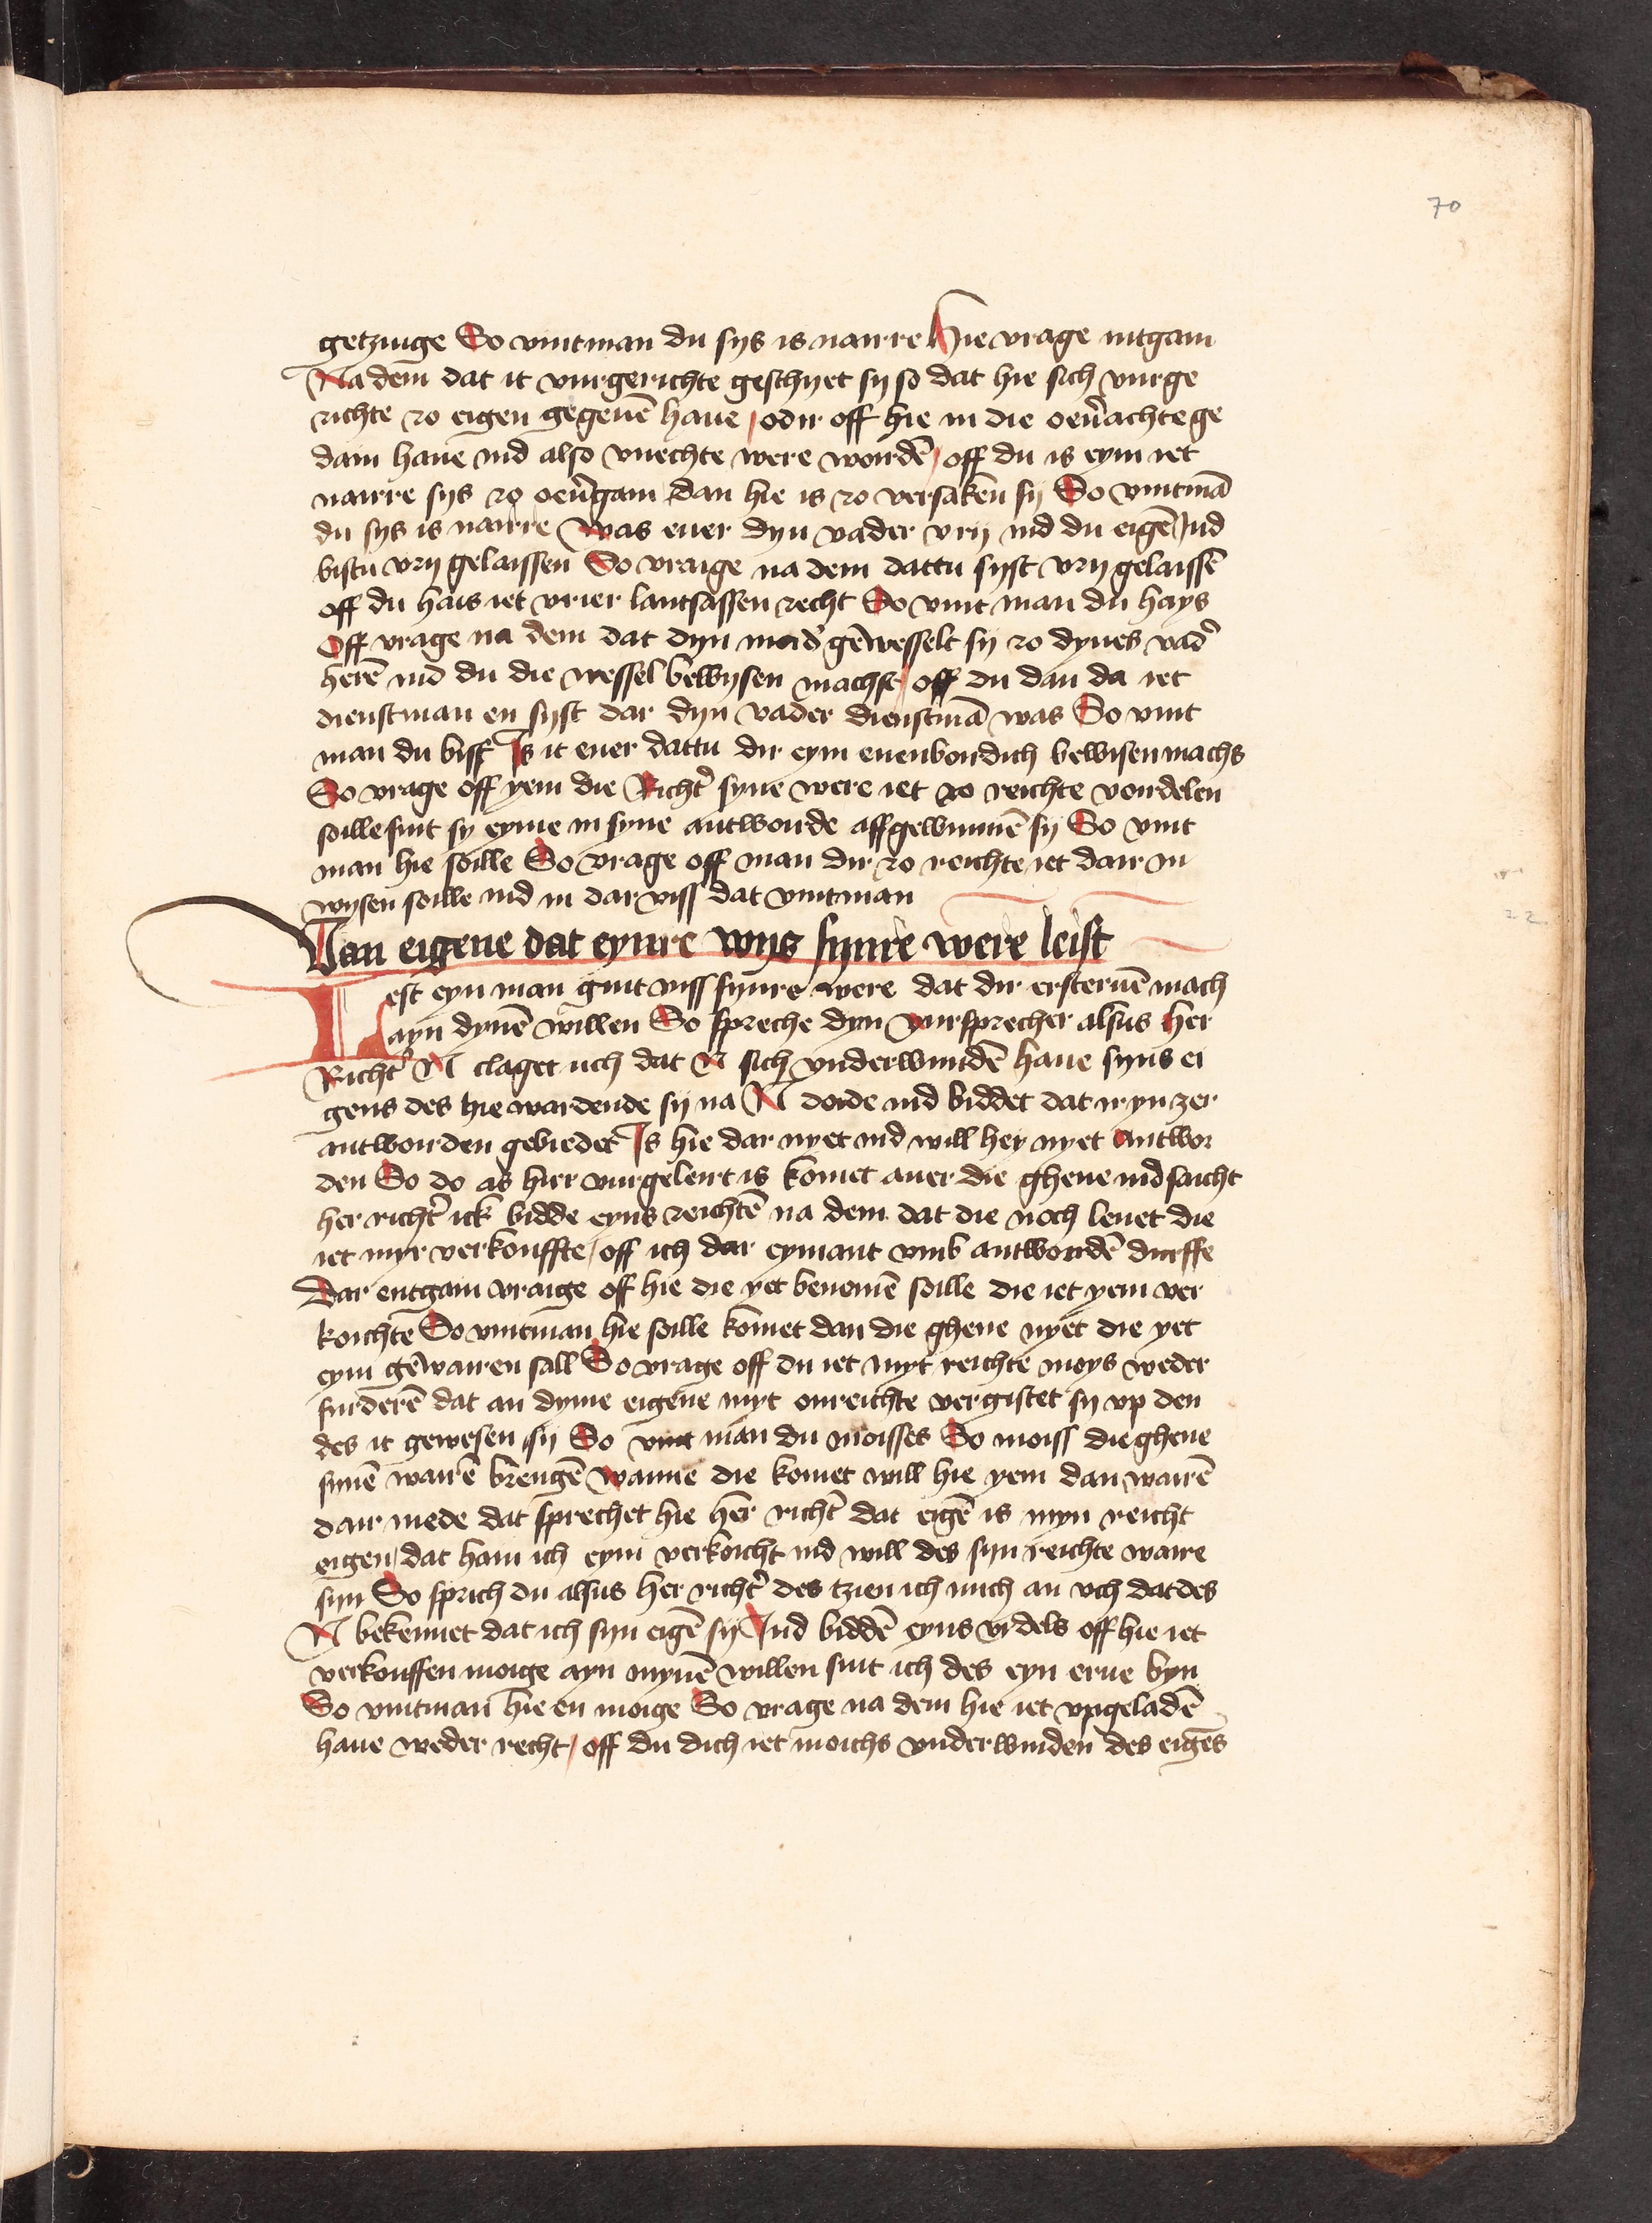 70
getzuige So vintman du sys is naırre Hie vrage intgain
Na dem dat it vurgerichte geschyet sy so dat hie sich vurge
richte zo eigen gegeuē haue / odir off hie in die oeūachte ge
dain haue ind also vnechte were wordē / off du is eym iet
nairre sys zo oeūgain dan hie is zo versaken sy So vintmā
du sys is nairre Was euer dyn vader vrij ind du eigē Ind
bistu vrij gelaissen So vraige na dem dattu syst vrij gelaissē
off du hais iet vrier lantsassen recht So vint man du hays
Off vrage na dem dat dyn mod' gewesselt sy zo dynes vad'
herē ind du die wessel bewysen machst / off du dan da iet
dienstman en syst dar dyn vader dienstmā was So vint
man du bist Is it euer dattu dir eym euenbordich bewisen machs
So vrage off yem die Richt' syne were iet zo reichte vordelen
soille sint sy eyme in syne antworde affgewunnē sy So vint
man hie soille So vrage off man dir zo reichte iet dair in
wysen soille ind in dar viss dat vintman
Van eigene dat eynre wys synre were leist
Lest eyn man guit viss synre were dat dir ersteruē mach
ayn dynē willen So spreche dyn vursprecher alsus her
Richt' N claget uch dat N sich vnderwundē haue syns ei
gens des hie wardende sy na N dode ind biddet dat ir yn zer
antworden gebiedet Is hie dar nyet ind will hey nyet Antwor
den So do as hier vurgeleirt is komet auer die ghene ind saicht
her richt' ick bidde eyns reichtē na dem dat die noch leuet die
iet myr verkouffte / off ich dar eymant vmb antwordē durffe
Dar entgain vraige off hie die yet benomē soille die iet yem ver
koichte So vintman hie soille komet dan die ghene nyet die yet
eym gewairen sall So vrage off du iet myt reichte moys weder
furderē dat an dyme eigene myt onreichte vergiftet sy vp den
des it gewesen sy So vint man du moisses So moiss die ghene
synē wairē brengē Wanne die komet will hie yem dan wairē
dair mede dat sprechet hie her richt' dat eigē is myn reicht
eigen / dat hain ich eym verkoicht ind will des syn reichte waire
syn So sprich du alsus her richt' des tzien ich mich an vch dat des
N bekennet dat ich syn eigē sy Ind biddē eyns vrdels off hie iet
verkouffen moige ayn mynē willen sint ich des eyn erue byn
So vintman hie en moige So vrage na dem hie iet vpgeladē
haue weder recht / off du dich iet moichs vnderwinden des eigēs